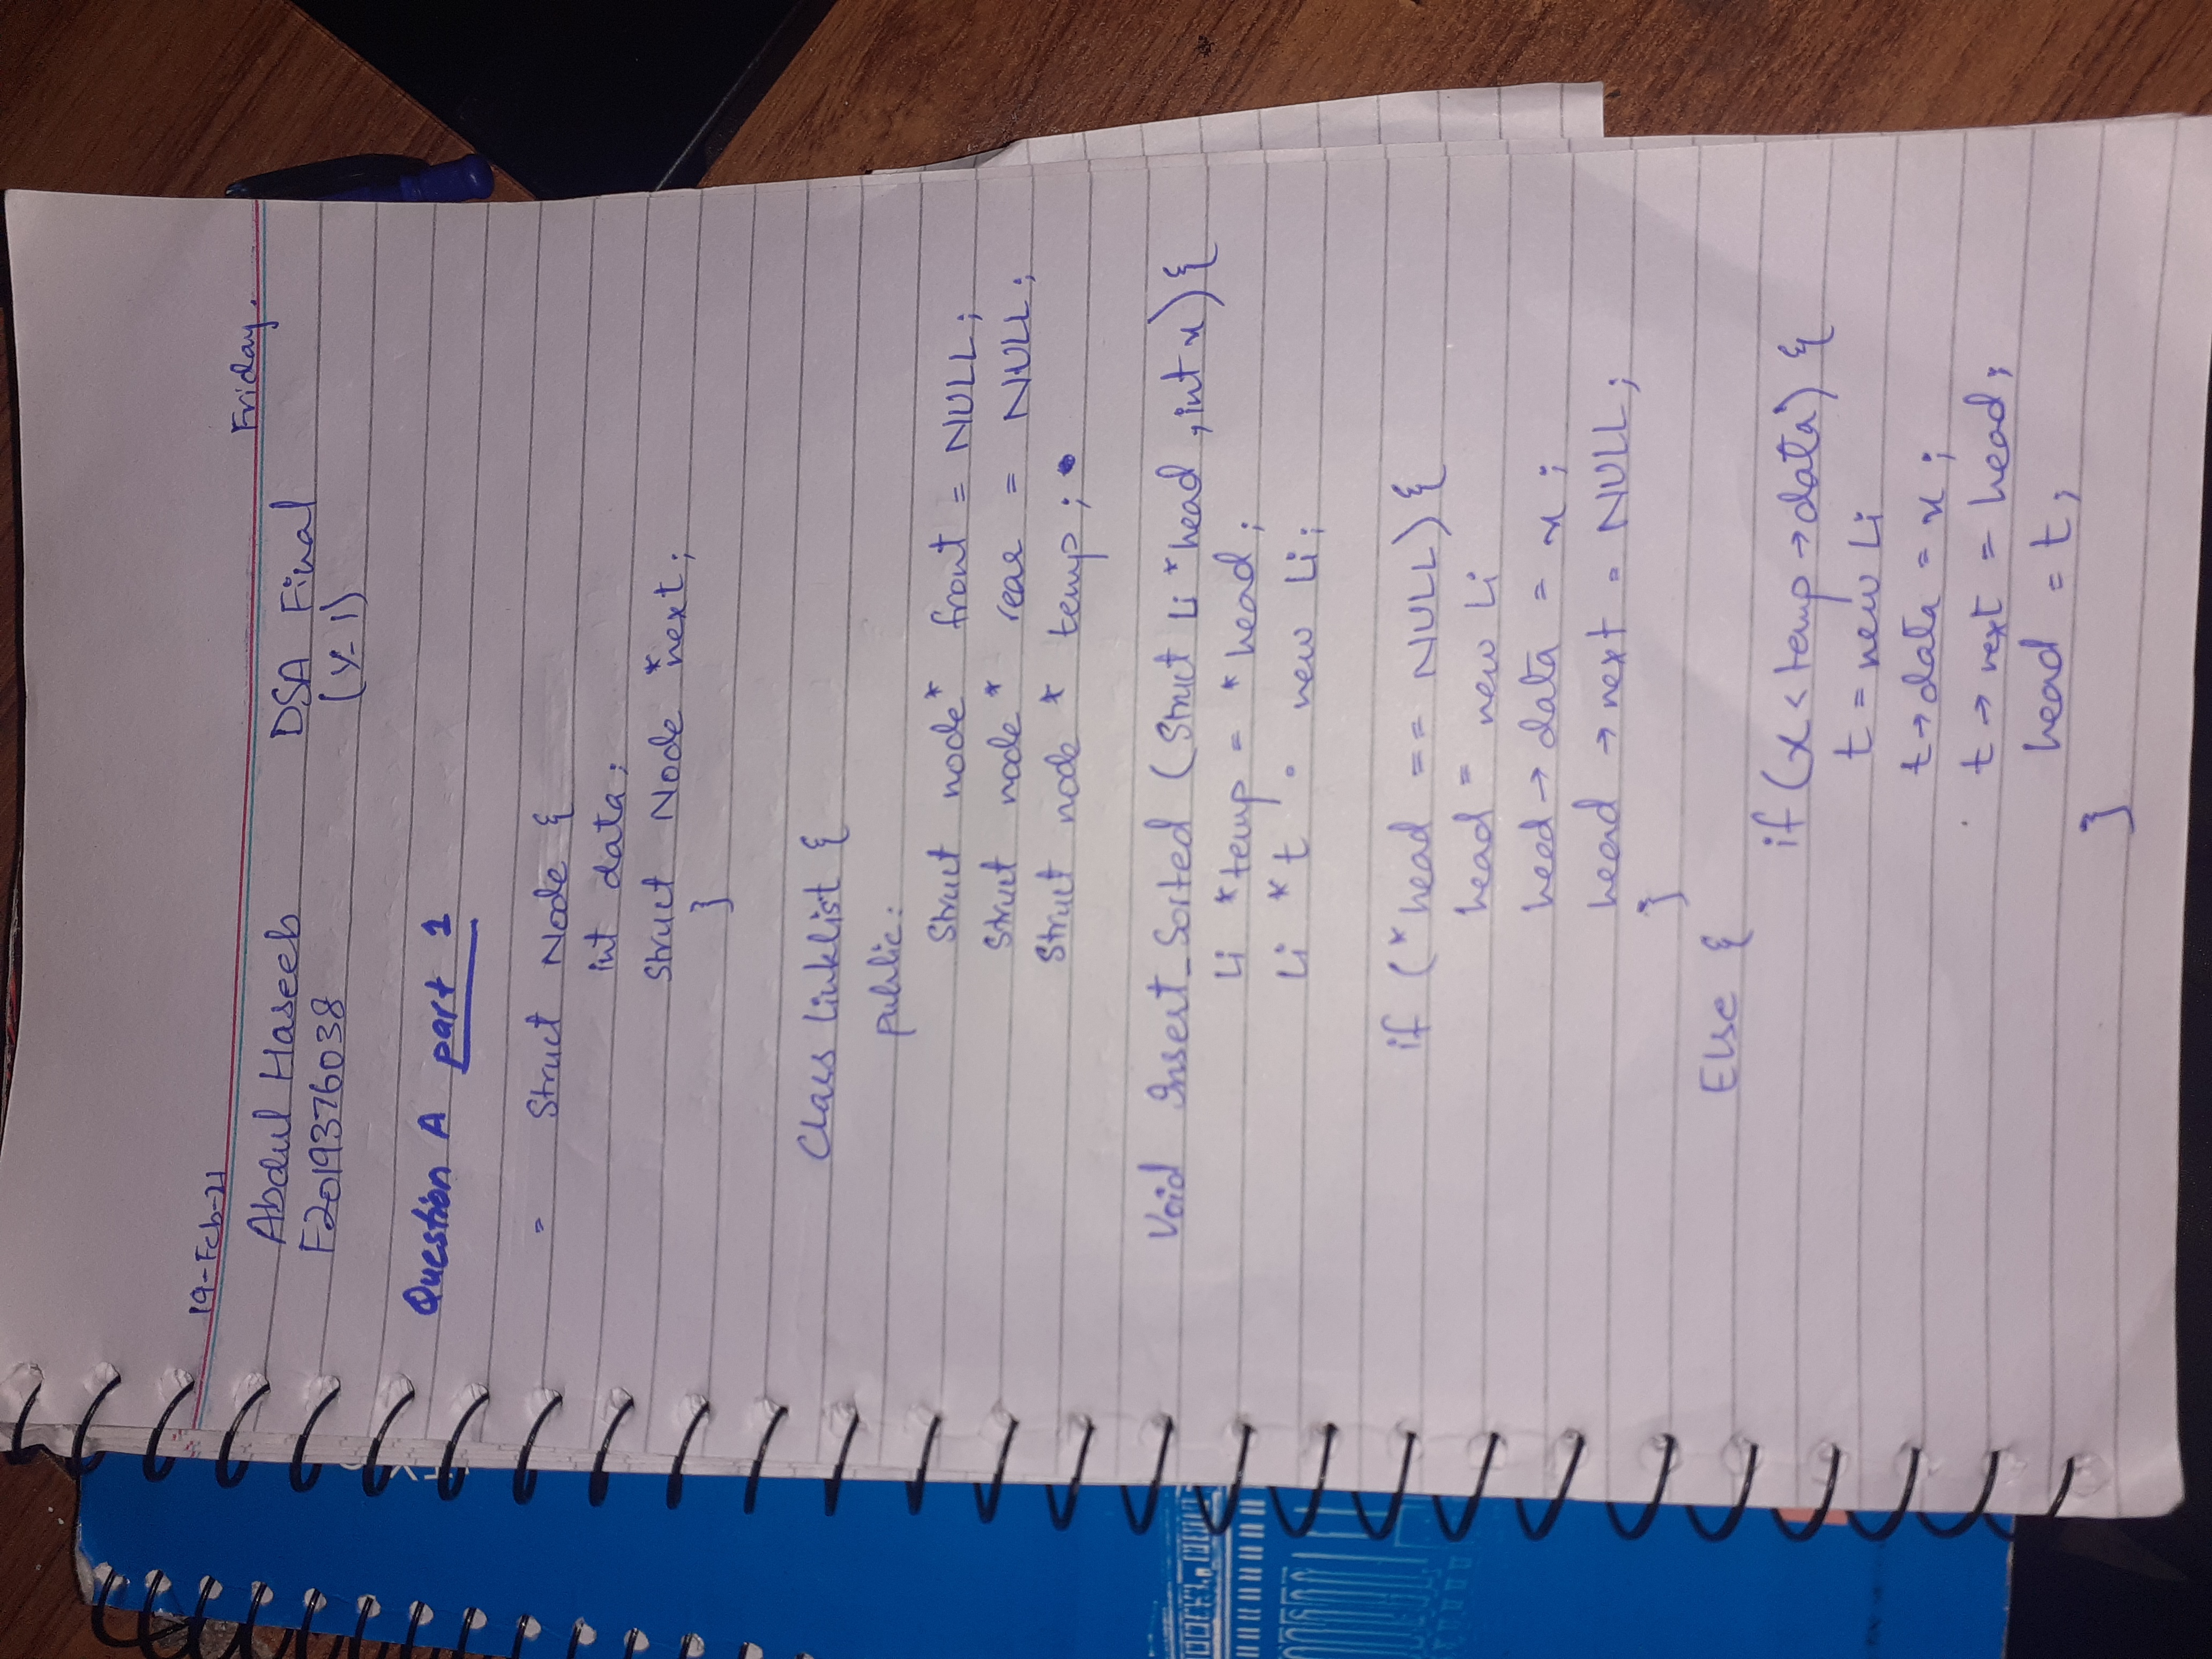 19-Feb-21
Friday.
Abdul Haseeb DSA Final
F2019376038 (Y-1)
Question A part 1
= Struct Node {
int data;
Struct Node *next;
}
Class linklist {
public:
Struct node* front = NULL;
Struct node* rear = NULL;
Struct node * temp;
Void Insert_Sorted (Struct Li *head, int x) {
Li *temp = *head;
Li *t = new Li;
if (*head == NULL) {
head = new Li
head → data = x;
head → next = NULL;
}
Else {
if (x < temp → data) {
t = new Li
t → data = x;
t → next = head;
head = t;
}